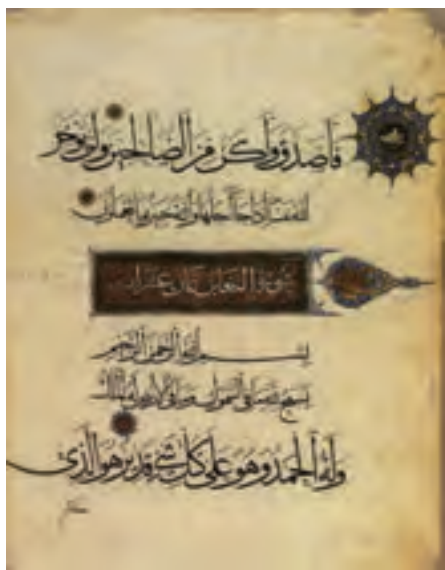 فاصدق واكن من الصالحين ولن يؤخر
الله نفسا اذا جا اجلها والله خبير بما تعملون
سورة التغابن ثمان عشر
بسم الله الرحمن الرحيم
يسبح لله ما في السموات وما في الارض له الملك
وله الحمد وهو على كل شي قدير هو الذي